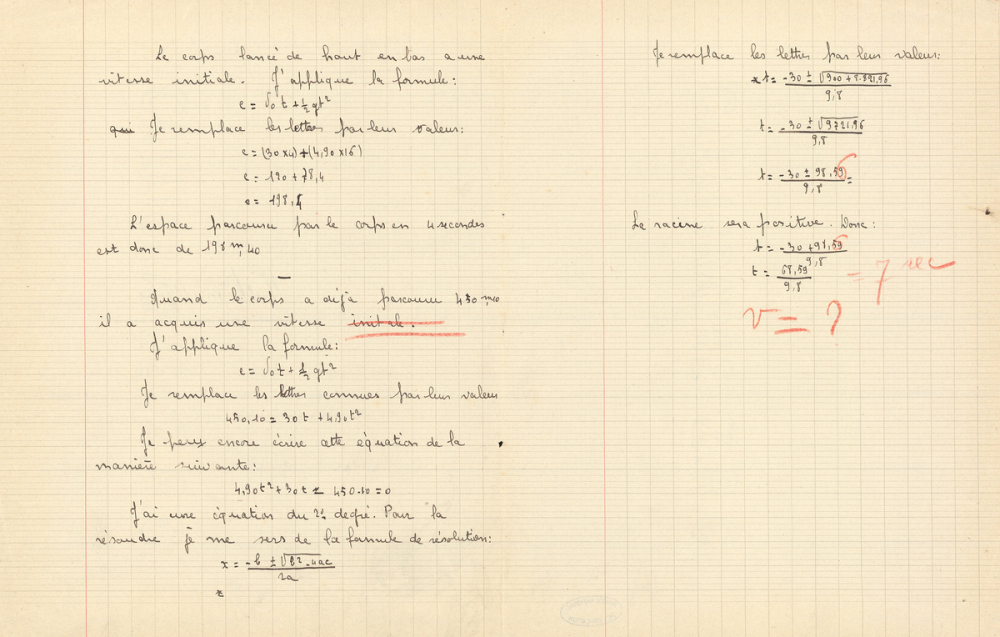 Le corps lancé de haut en bas a une
vitesse initiale. J'applique la formule:
e = V₀t + ½gt²
Je remplace les lettres par leur valeur:
e = (30 x 4) + (4,90 x 16)
e = 120 + 78,4
e = 198,4
L'espace parcouru par le corps en 4 secondes
est donc de 198 m, 40
Quand le corps a déjà parcouru 450 m,10
il a acquis une vitesse initiale.
J'applique la formule:
e = V₀t + ½gt²
Je remplace les lettres connues par leur valeur
450,10 = 30t + 4,90t²
Je peux encore écrire cette équation de la
manière suivante:
4,90t² + 30t - 450.10 = 0
J'ai une équation du 2e degré. Pour la
résoudre je me sers de la formule de résolution:
x = -b ± √b² - 4ac
2a
Je remplace les lettres par leur valeur:
t = -30 ± √900 + 8.821,96
9,8
t = -30 ± √9721,96
9,8
t = -30 ± 98,59 =
9,8
La racine sera positive. Donc:
t = -30 + 98,59
9,8
t = 68,59 = 7 sec
9,8
v = ?